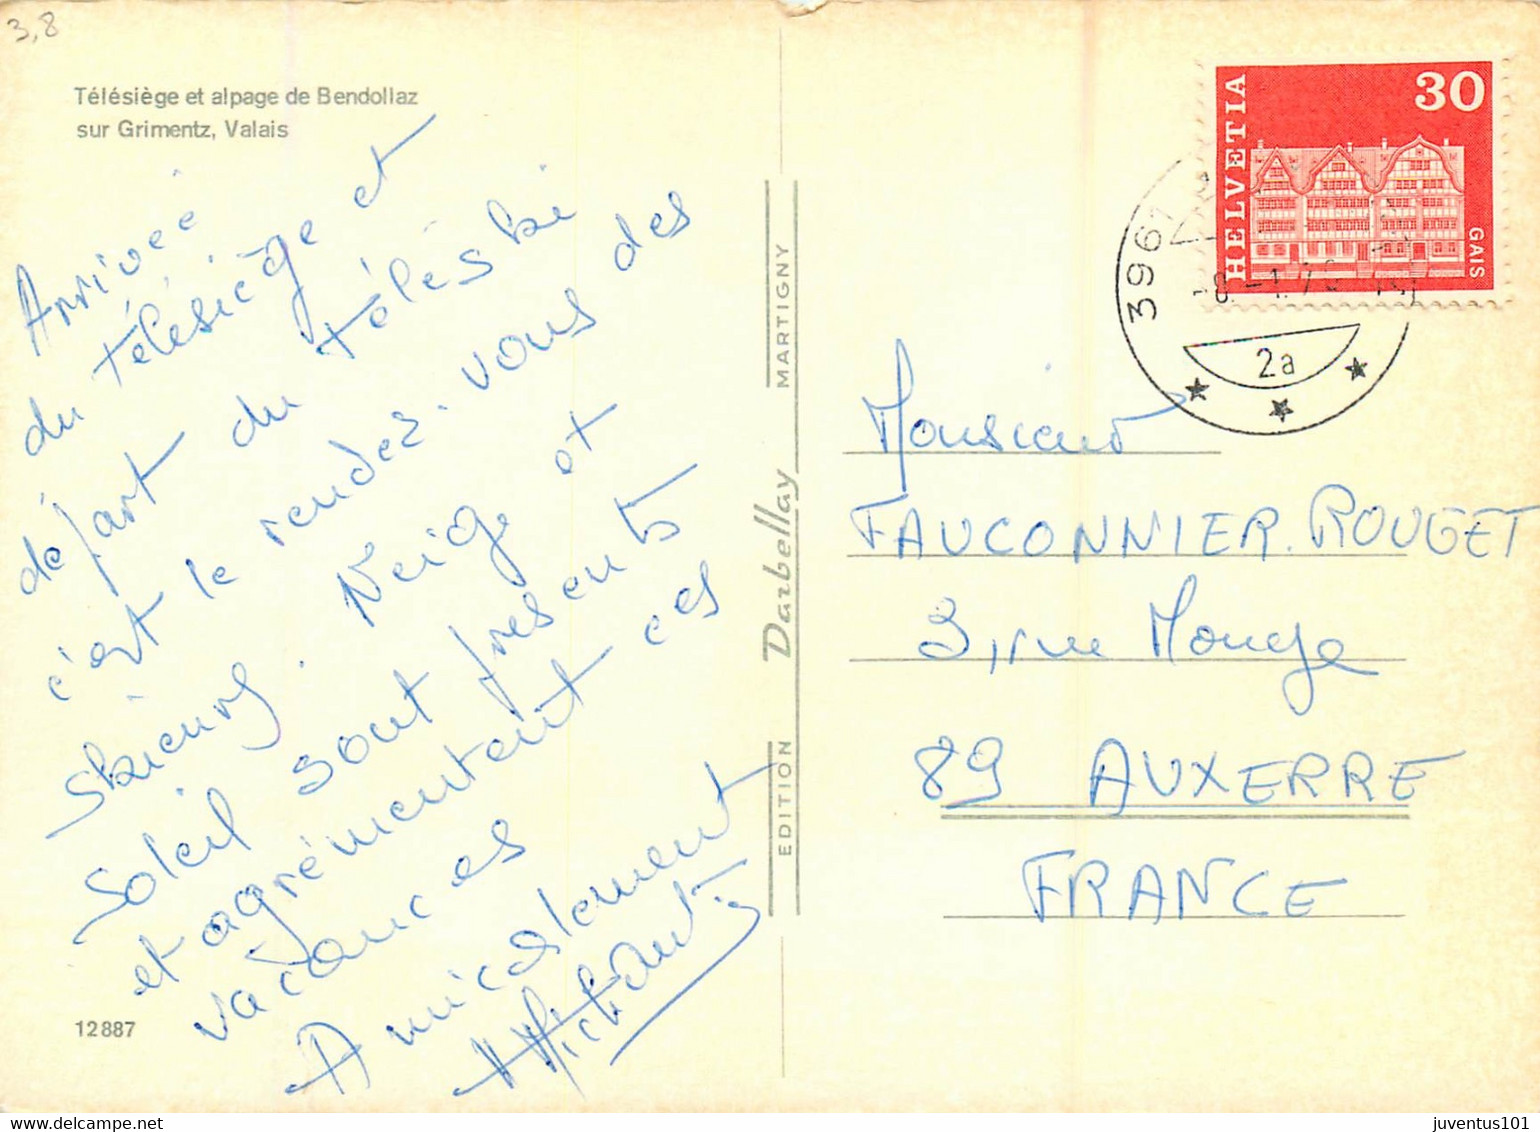 3,8
Télésiège et alpage de Bendollaz
sur Grimentz, Valais
Arrivée
du télésiège et
départ du téléski
c'est le rendez-vous des
skieurs. Neige et
Soleil sont présents
et agrémentent ces
vacances
Amicalement
12887
EDITION Darbellay MARTIGNY
HELVETIA
30
GAIS
3961
2a
Monsieur
FAUCONNIER.ROUGET
3, rue Monge
89 AUXERRE
FRANCE
www.delcampe.net
juventus101